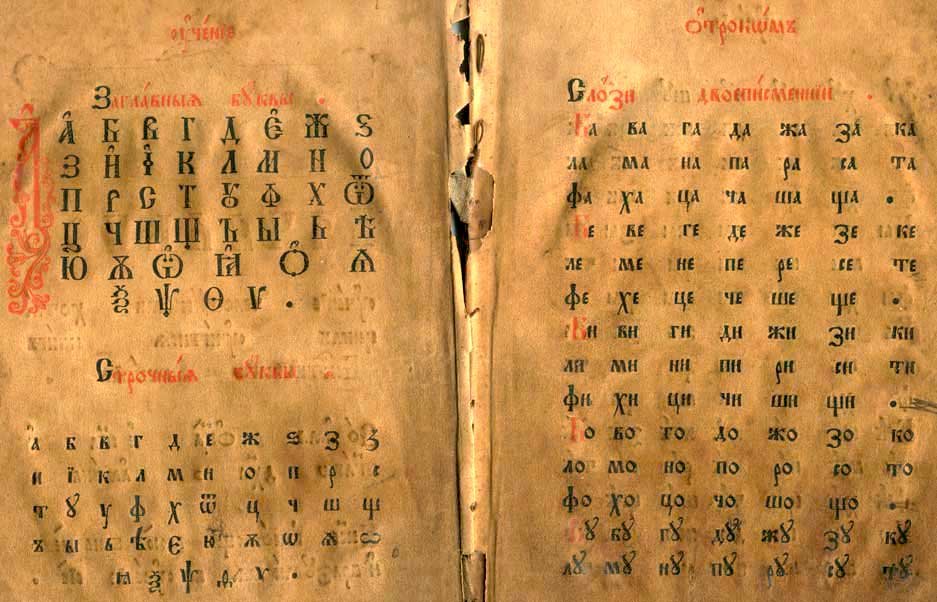 ᲂу҆че́нїе
Загла́вныѧ бꙋ́квы .
А҆ Б В Г Д Є҆ Ж Ѕ
З И҆ І҆ К Л М Н О
П Р С Т Ꙋ Ф Х Ѿ
Ц Ч Ш Щ Ъ Ы Ь Ѣ
Ю҆ Ѫ Ѡ҆ Ꙗ҆ Ѻ҆ Ѧ
Ѯ Ѱ Ѳ Ѵ .
Стро́чныѧ бꙋ́квы
а б в г д е ж ѕ з ꙁ
и ї к л м н п р с
т ꙋ у ф х ѿ ц ч ш щ
ъ ы ь ѣ є ю ѫ ѡ ѧ
ꙗ ѯ ѱ ѳ ѵ .
Ѻ҆трокѡ́мъ
Сло́зи двоепи́сменнїи .
Ба ва га да жа за ка
ла ма на па ра са та
фа ха ца ча ша ща .
Бе ве ге де же зе ке
ле ме не пе ре се те
фе хе це че ше ще .
Би ви ги ди жи зи ки
ли ми ни пи ри си ти
фи хи ци чи ши щи .
Бо во го до жо зо ко
ло мо но по ро со то
фо хо цо чо шо що .
Бꙋ вꙋ гꙋ дꙋ жꙋ зꙋ кꙋ
лꙋ мꙋ нꙋ пꙋ рꙋ сꙋ тꙋ